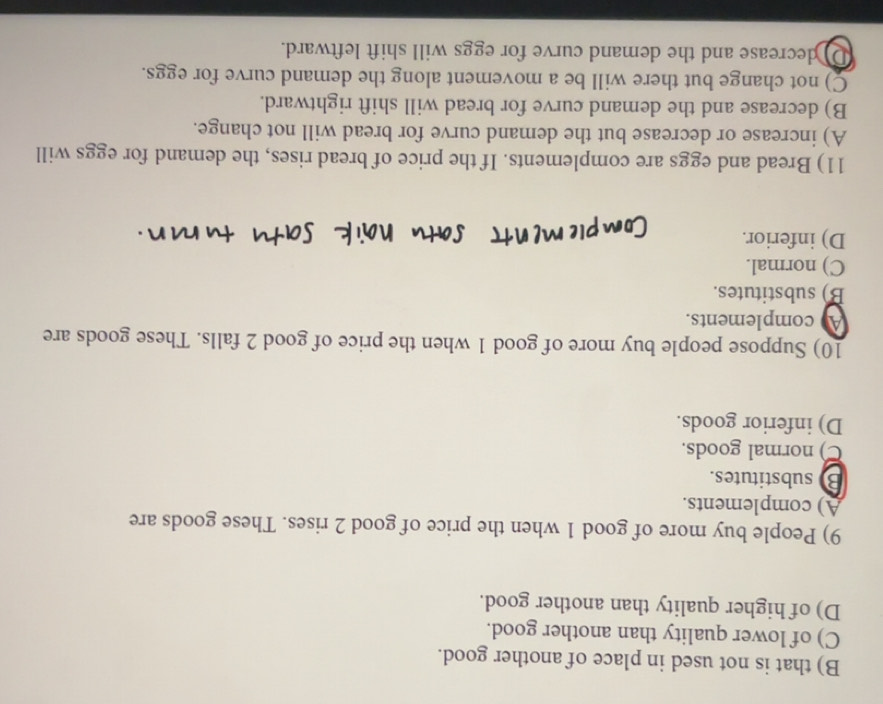 B) that is not used in place of another good.
C) of lower quality than another good.
D) of higher quality than another good.
9) People buy more of good 1 when the price of good 2 rises. These goods are
A) complements.
B) substitutes.
C) normal goods.
D) inferior goods.
10) Suppose people buy more of good 1 when the price of good 2 falls. These goods are
A) complements.
B) substitutes.
C) normal.
D) inferior.
Complements satu naik satu turun.
11) Bread and eggs are complements. If the price of bread rises, the demand for eggs will
A) increase or decrease but the demand curve for bread will not change.
B) decrease and the demand curve for bread will shift rightward.
C) not change but there will be a movement along the demand curve for eggs.
D) decrease and the demand curve for eggs will shift leftward.